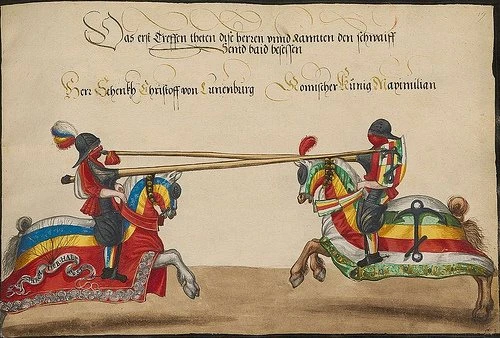 Das erst Treffen theten dise herren vnnd kannten den schwaiff
Seind baid besessen
Herr Schenkh Christoff von Lunenburg
Romischer Kúnig Maximilian